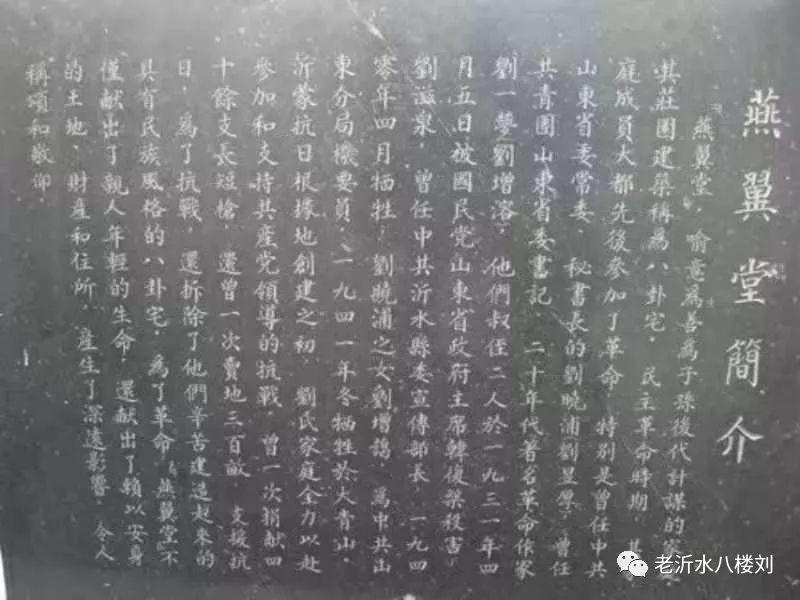 燕翼堂簡介
燕翼堂，喻意為善為子孫後代計謀的
堂，莊園建築稱為八卦宅。民主革命時期，其
庭成員大都先後參加了革命，特别是曾任中共
山東省委常委、秘書長的劉曉浦劉昱厚，曾任
共青團山東省委書記、二十年代著名革命作家
劉一夢（劉增溶，他們叔侄二人於一九三一年四
月五日被國民党山東省政府主席韓復榘殺害。
劉滋泉，曾任中共沂水縣委宣傳部長，一九四
零年四月牺牲。劉曉浦之女劉增鵠，為中共山
東分局機要員，一九四一年冬牺牲於大青山。
沂蒙抗日根據地創建之初，劉氏家庭全力以赴
參加和支持共産党領導的抗戰，曾一次捐献四
十餘支長短槍，還曾一次賣地三百畝，支援抗
日，為了抗戰，還拆除了他們辛苦建造起來的
具有民族風格的八卦宅。為了革命，燕翼堂不
僅献出了親人年輕的生命，還献出了賴以安身
的土地、財産和住所，産生了深遠影響，令人
稱頌和敬仰。
老沂水八楼刘